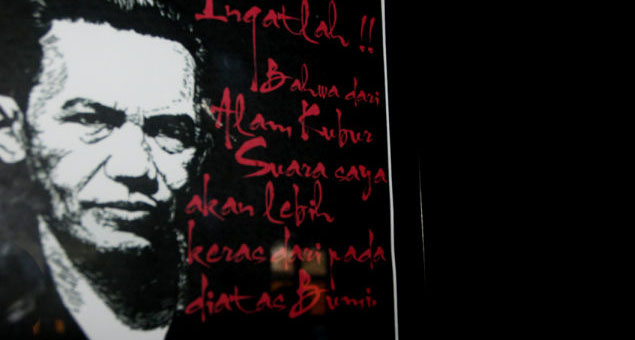 Ingatlah !!
Bahwa dari
Alam Kubur
Suara saya
akan lebih
keras dari pada
diatas Bumi.